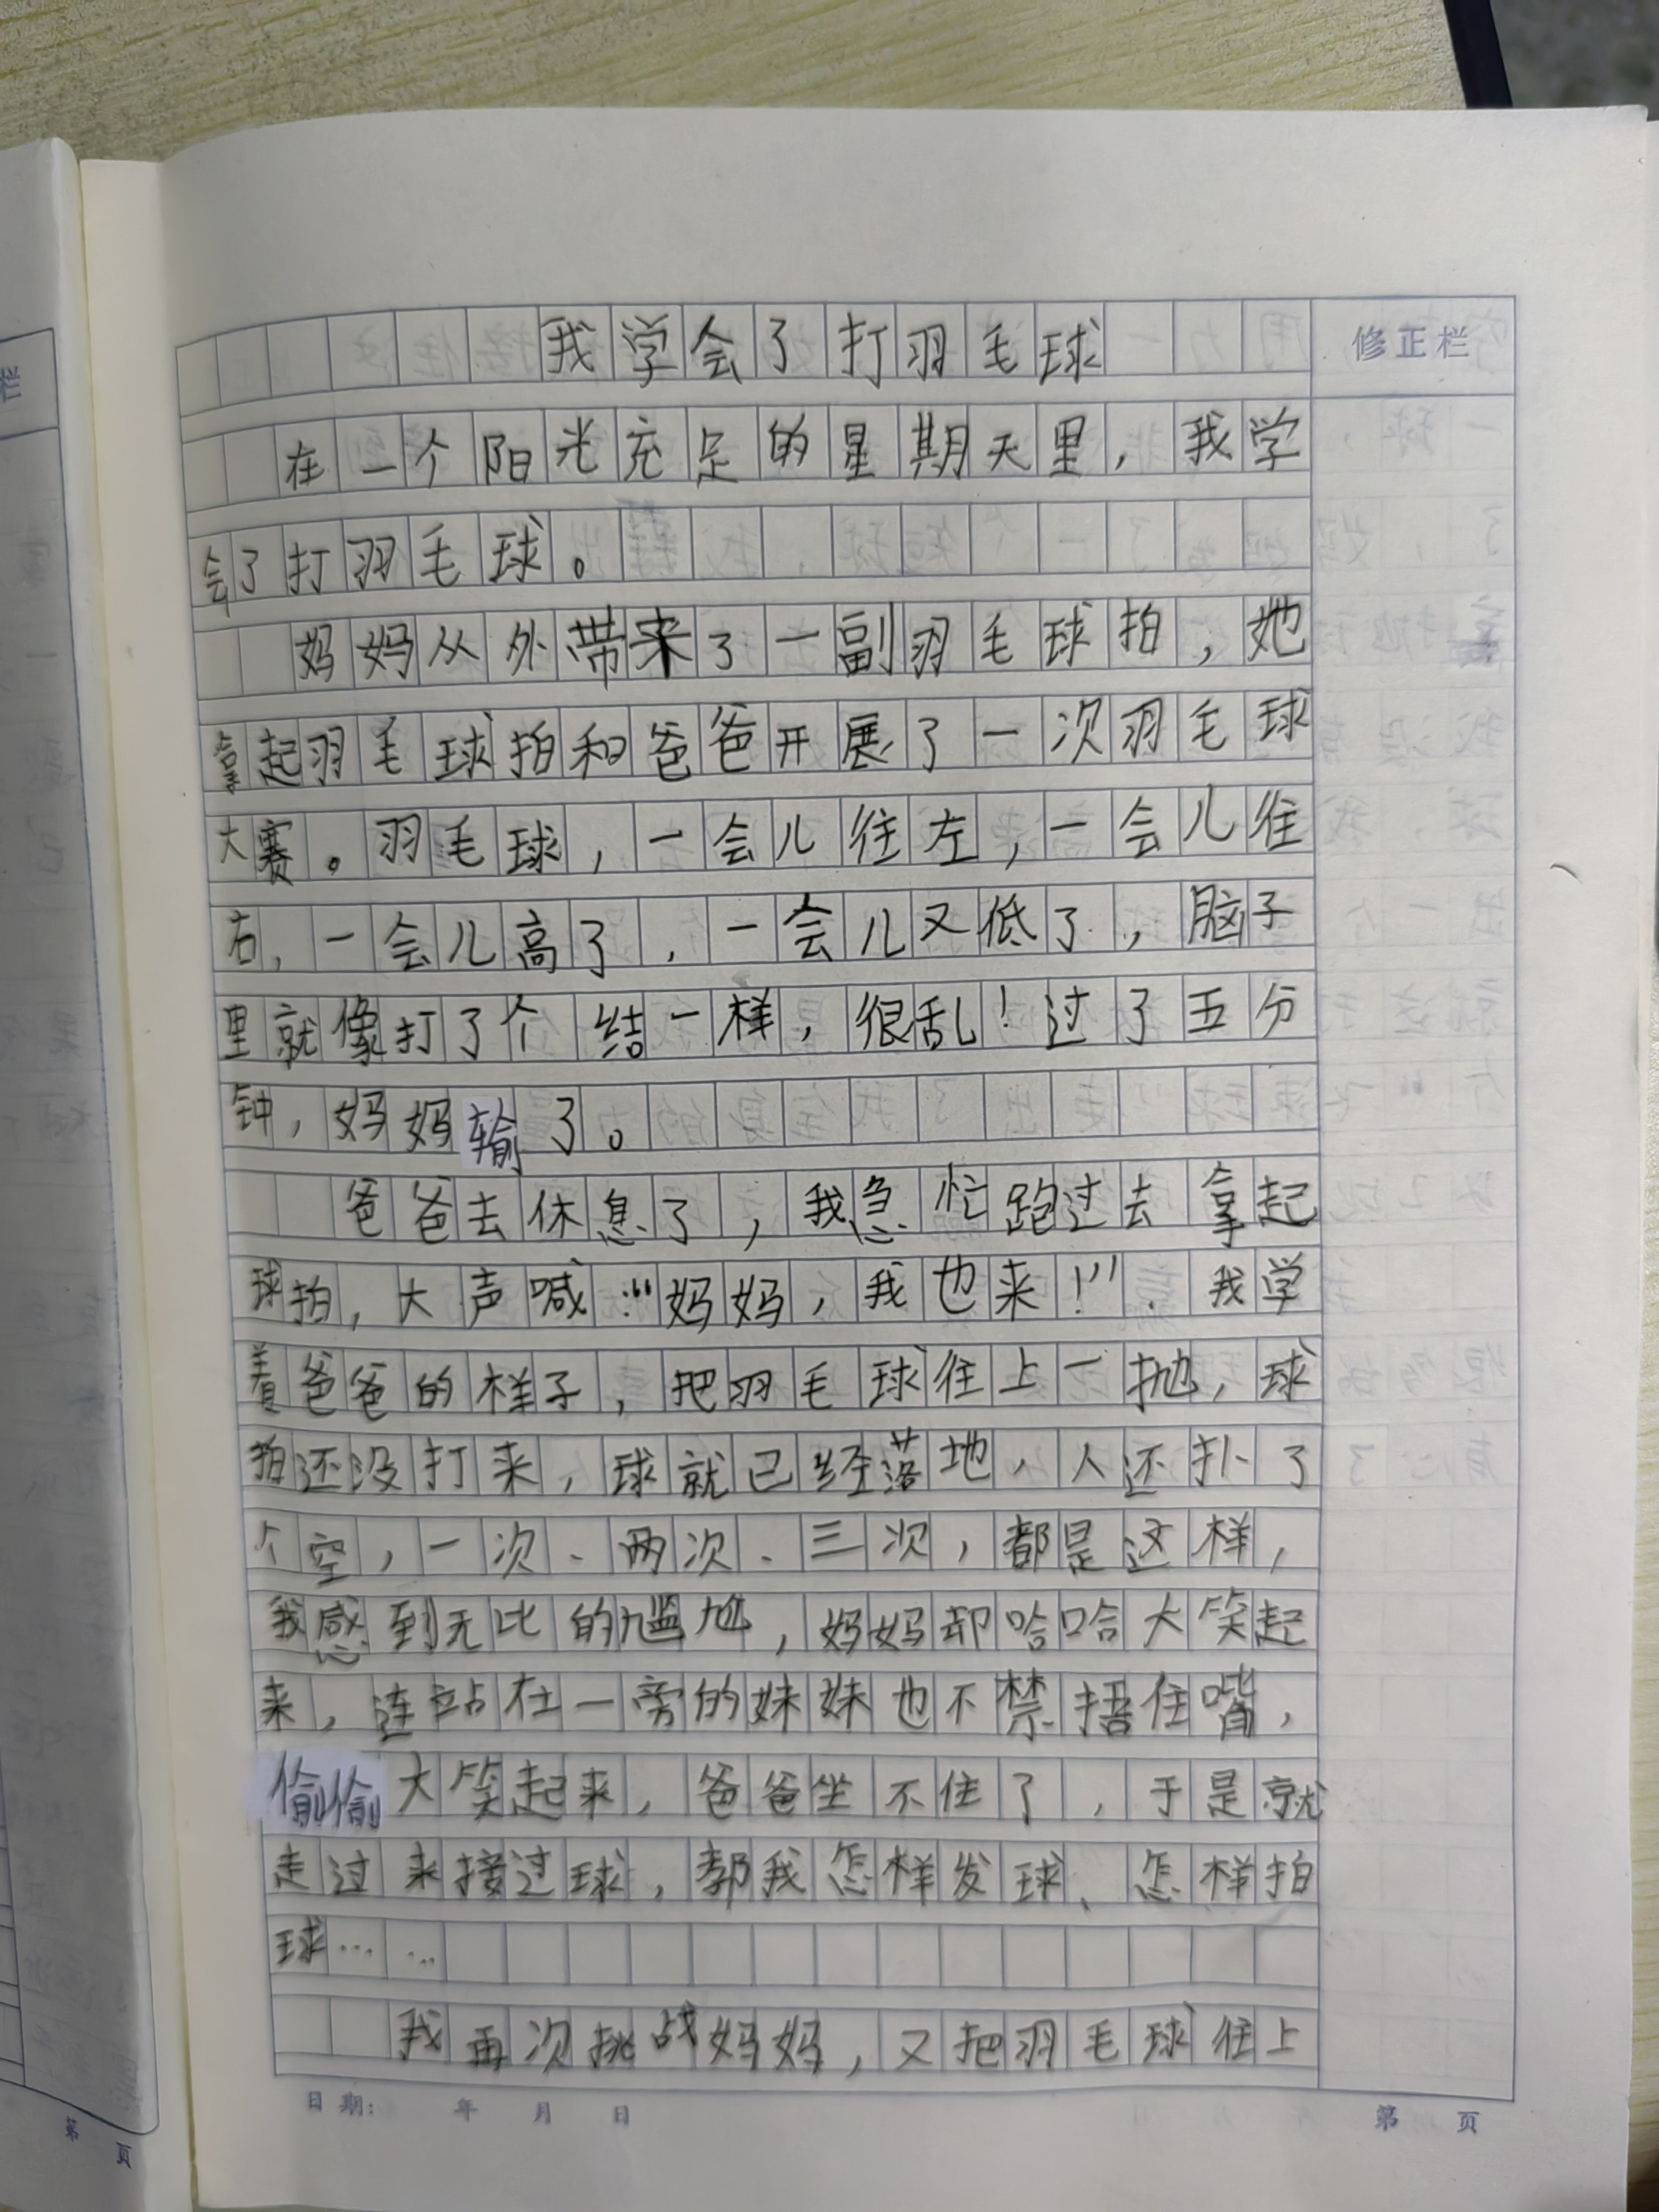 我学会了打羽毛球
修正栏
在一个阳光充足的星期天里，我学
会了打羽毛球。
妈妈从外带来了一副羽毛球拍，她
拿起羽毛球拍和爸爸开展了一次羽毛球
大赛。羽毛球，一会儿往左，一会儿往
右，一会儿高了，一会儿又低了，脑子
里就像打了个结一样，很乱！过了五分
钟，妈妈输了。
爸爸去休息了，我急忙跑过去拿起
球拍，大声喊：“妈妈，我也来！”我学
着爸爸的样子，把羽毛球往上一抛，球
拍还没打来，球就已经落地，人还扑了
个空，一次、两次、三次，都是这样，
我感到无比的尴尬，妈妈却哈哈大笑起
来，连站在一旁的妹妹也不禁捂住嘴，
偷偷大笑起来，爸爸坐不住了，于是就
走过来接过球，我怎样发球、怎样拍
球……
我再次挑战妈妈，又把羽毛球往上
日期： 年 月 日
第 页
栏
第 页